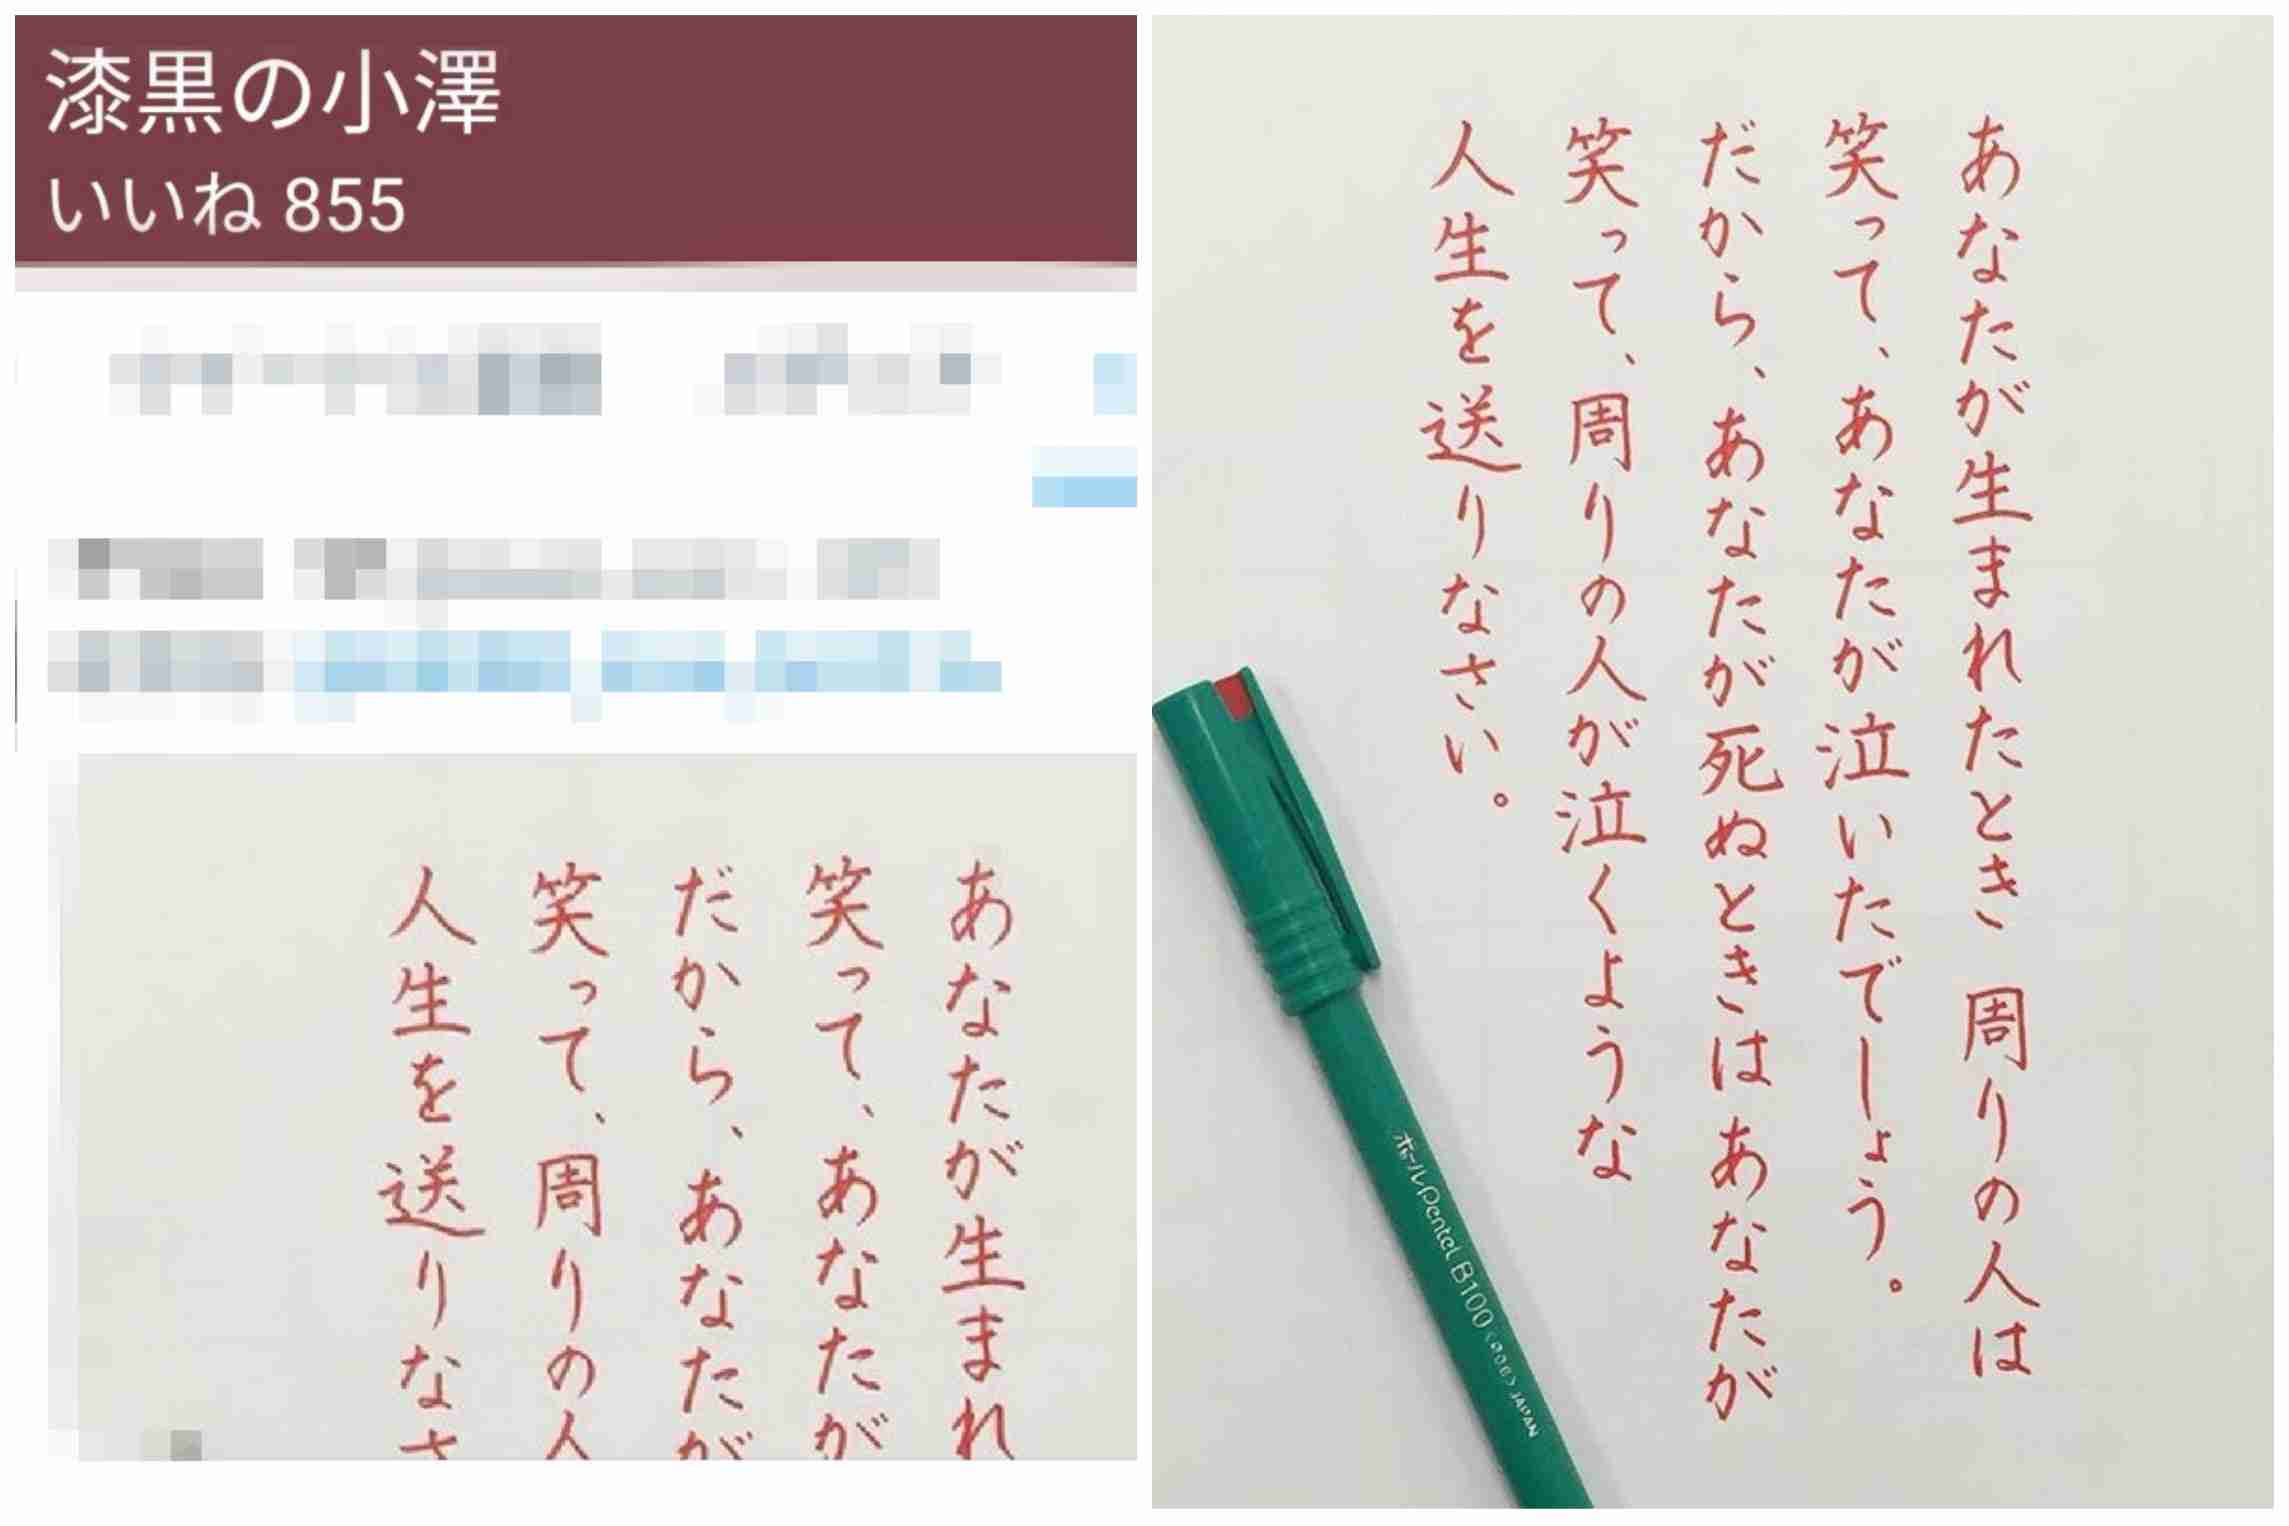 漆黒の小澤
いいね 855
あなたが生まれ
笑って、あなたが
だから、あなたが
笑って、周りの人
人生を送りなさ
あなたが生まれたとき 周りの人は
笑って、あなたが泣いたでしょう。
だから、あなたが死ぬときは あなたが
笑って、周りの人が泣くような
人生を送りなさい。
ボールPentel B100 JAPAN